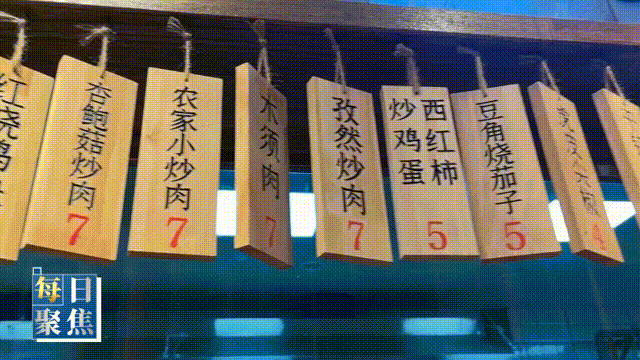 红烧鸡
杏鲍菇炒肉
7
农家小炒肉
7
木须肉
7
孜然炒肉
7
西红柿
炒鸡蛋
5
豆角烧茄子
5
4
每日
聚焦